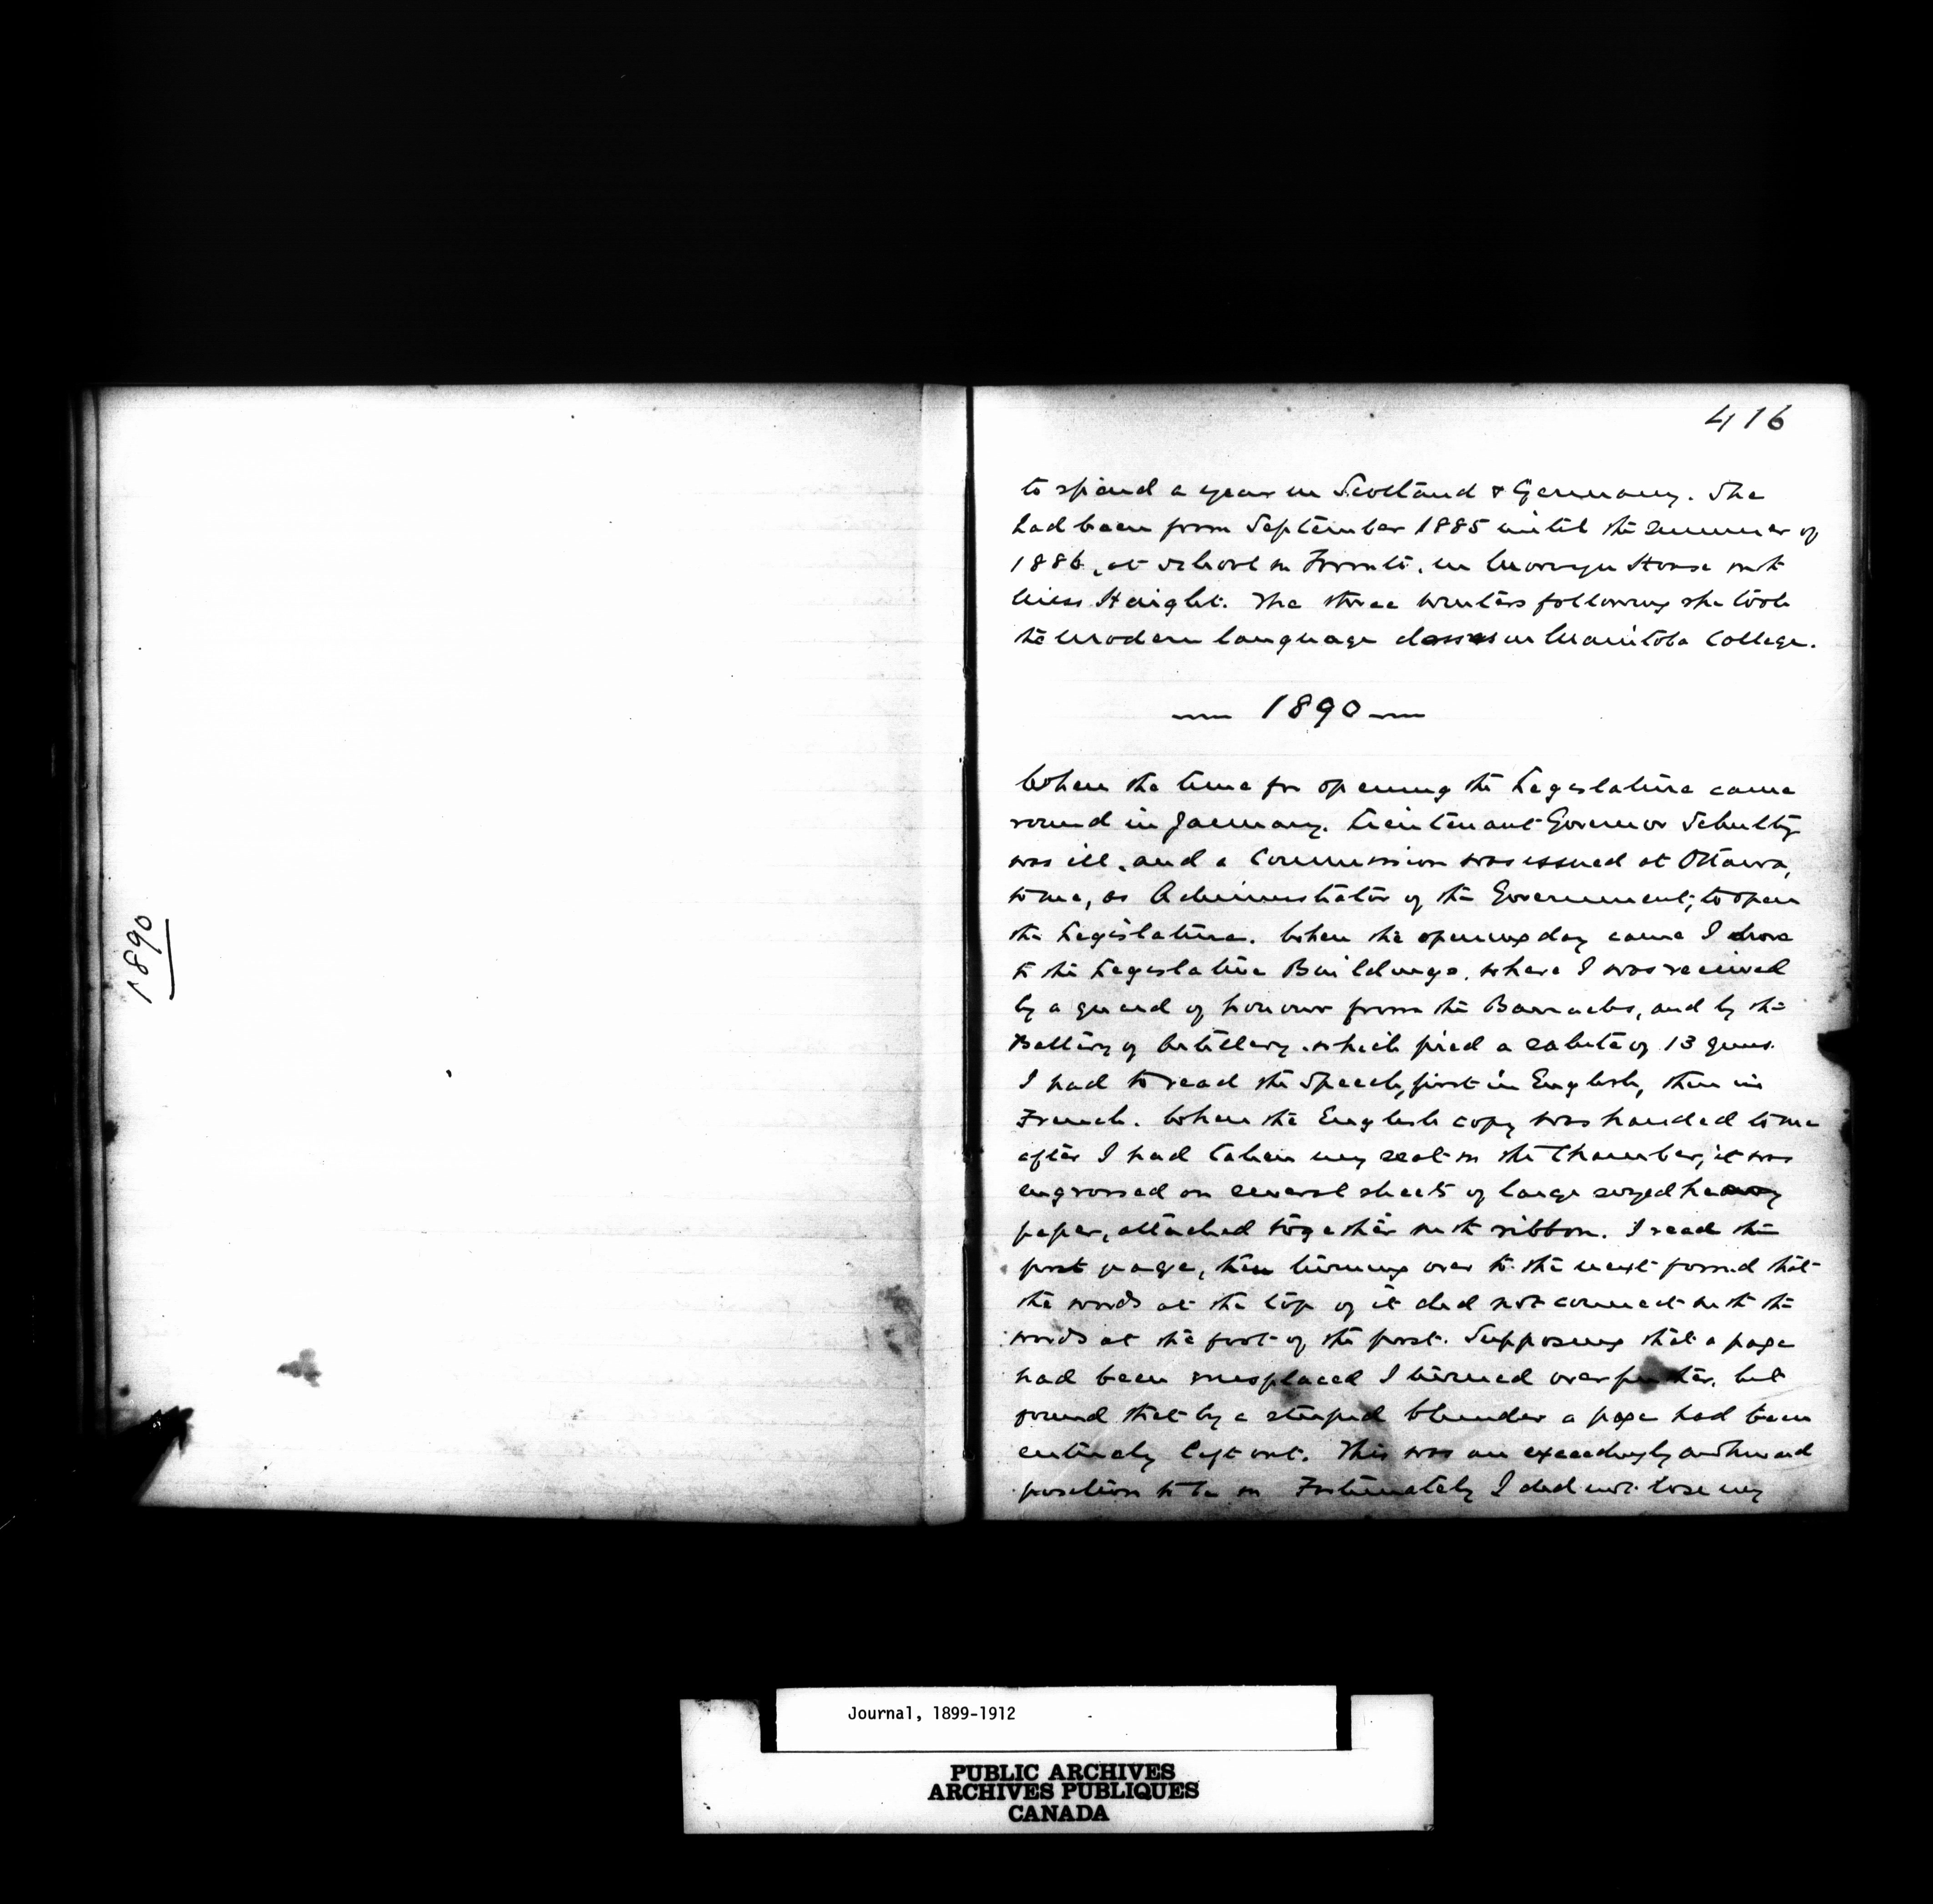 1890
416
to spend a year in Scotland & Germany. She
had been from September 1885 until the summer of
1886, at school in Toronto, in Morvyn House with
Miss Haight. The three winters following she took
the Modern language classes in Manitoba College.
— 1890 —
When the time for opening the Legislature came
round in January, Lieutenant Governor Schultz
was ill, and a Commission was issued at Ottawa,
to me, as Administrator of the Government, to open
the Legislature. When the opening day came I drove
to the Legislative Buildings, where I was received
by a guard of honour from the Barracks, and by the
Battery of Artillery which fired a salute of 13 guns.
I had to read the Speech, first in English, then in
French. When the English copy was handed to me
after I had taken my seat in the Chamber, it was
engrossed on several sheets of large sized heavy
paper, attached together with ribbon. I read the
first page, then turning over to the next found that
the words at the top of it did not connect with the
words at the foot of the first. Supposing that a page
had been misplaced I turned over further, but
found that by a stupid blunder a page had been
entirely left out. This was an exceedingly awkward
position to be in Fortunately I did not lose my
Journal, 1899-1912
PUBLIC ARCHIVES
ARCHIVES PUBLIQUES
CANADA